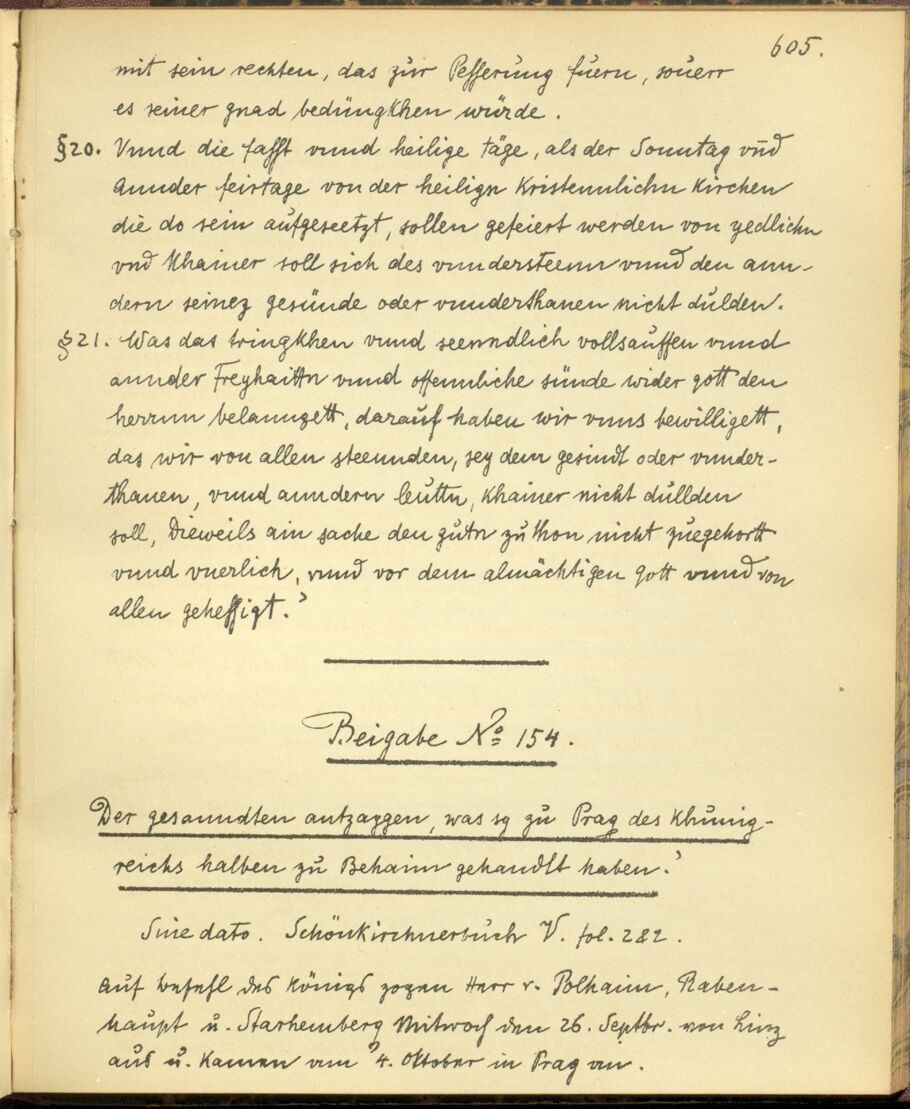 605.
mit sein rechten, das zur Pesserung fuern, souerr
es seiner gnad bedüngkhen würde.
§20. Vnnd die fasst vnnd heilige täge, als der Sonntag vnd
annder feirtage von der heilign Kristennlichn Kirchen
die do sein aufgeseetzt, sollen gefeiert werden von yedlichn
vnd Khainer soll sich des vnndersteenn vnnd den ann-
dern seinez gesünde oder vnnderthanen nicht dulden.
§21. Was das tringkhen vnnd seenndlich vollsauffen vnnd
annder Freyhaittn vnnd offennliche sünde wider gott den
herrnn belanngett, darauf haben wir vnns bewilligett,
das wir von allen steennden, sey dem gesindt oder vnnder-
thanen, vnnd anndern leuttn, Khainer nicht dullden
soll, Dieweils ain sache den gutn zu thon nicht zuegehortt
vnnd vnerlich, vnnd vor dem almächtigen gott vnnd von
allen gehessigt.
Beigabe No 154.
Der gesanndten antzaygen, was sy zu Prag des Khunig-
reichs halben zu Behaim gehandlt haben.
Sine dato. Schönkirchnerbuch V. fol. 282.
Auf Befehl des Königs zogen Herr v. Polhaim, Raben-
haupt u. Starhemberg Mitwoch den 26. Septbr. von Linz
aus u. kamen am 4. Oktober in Prag an.